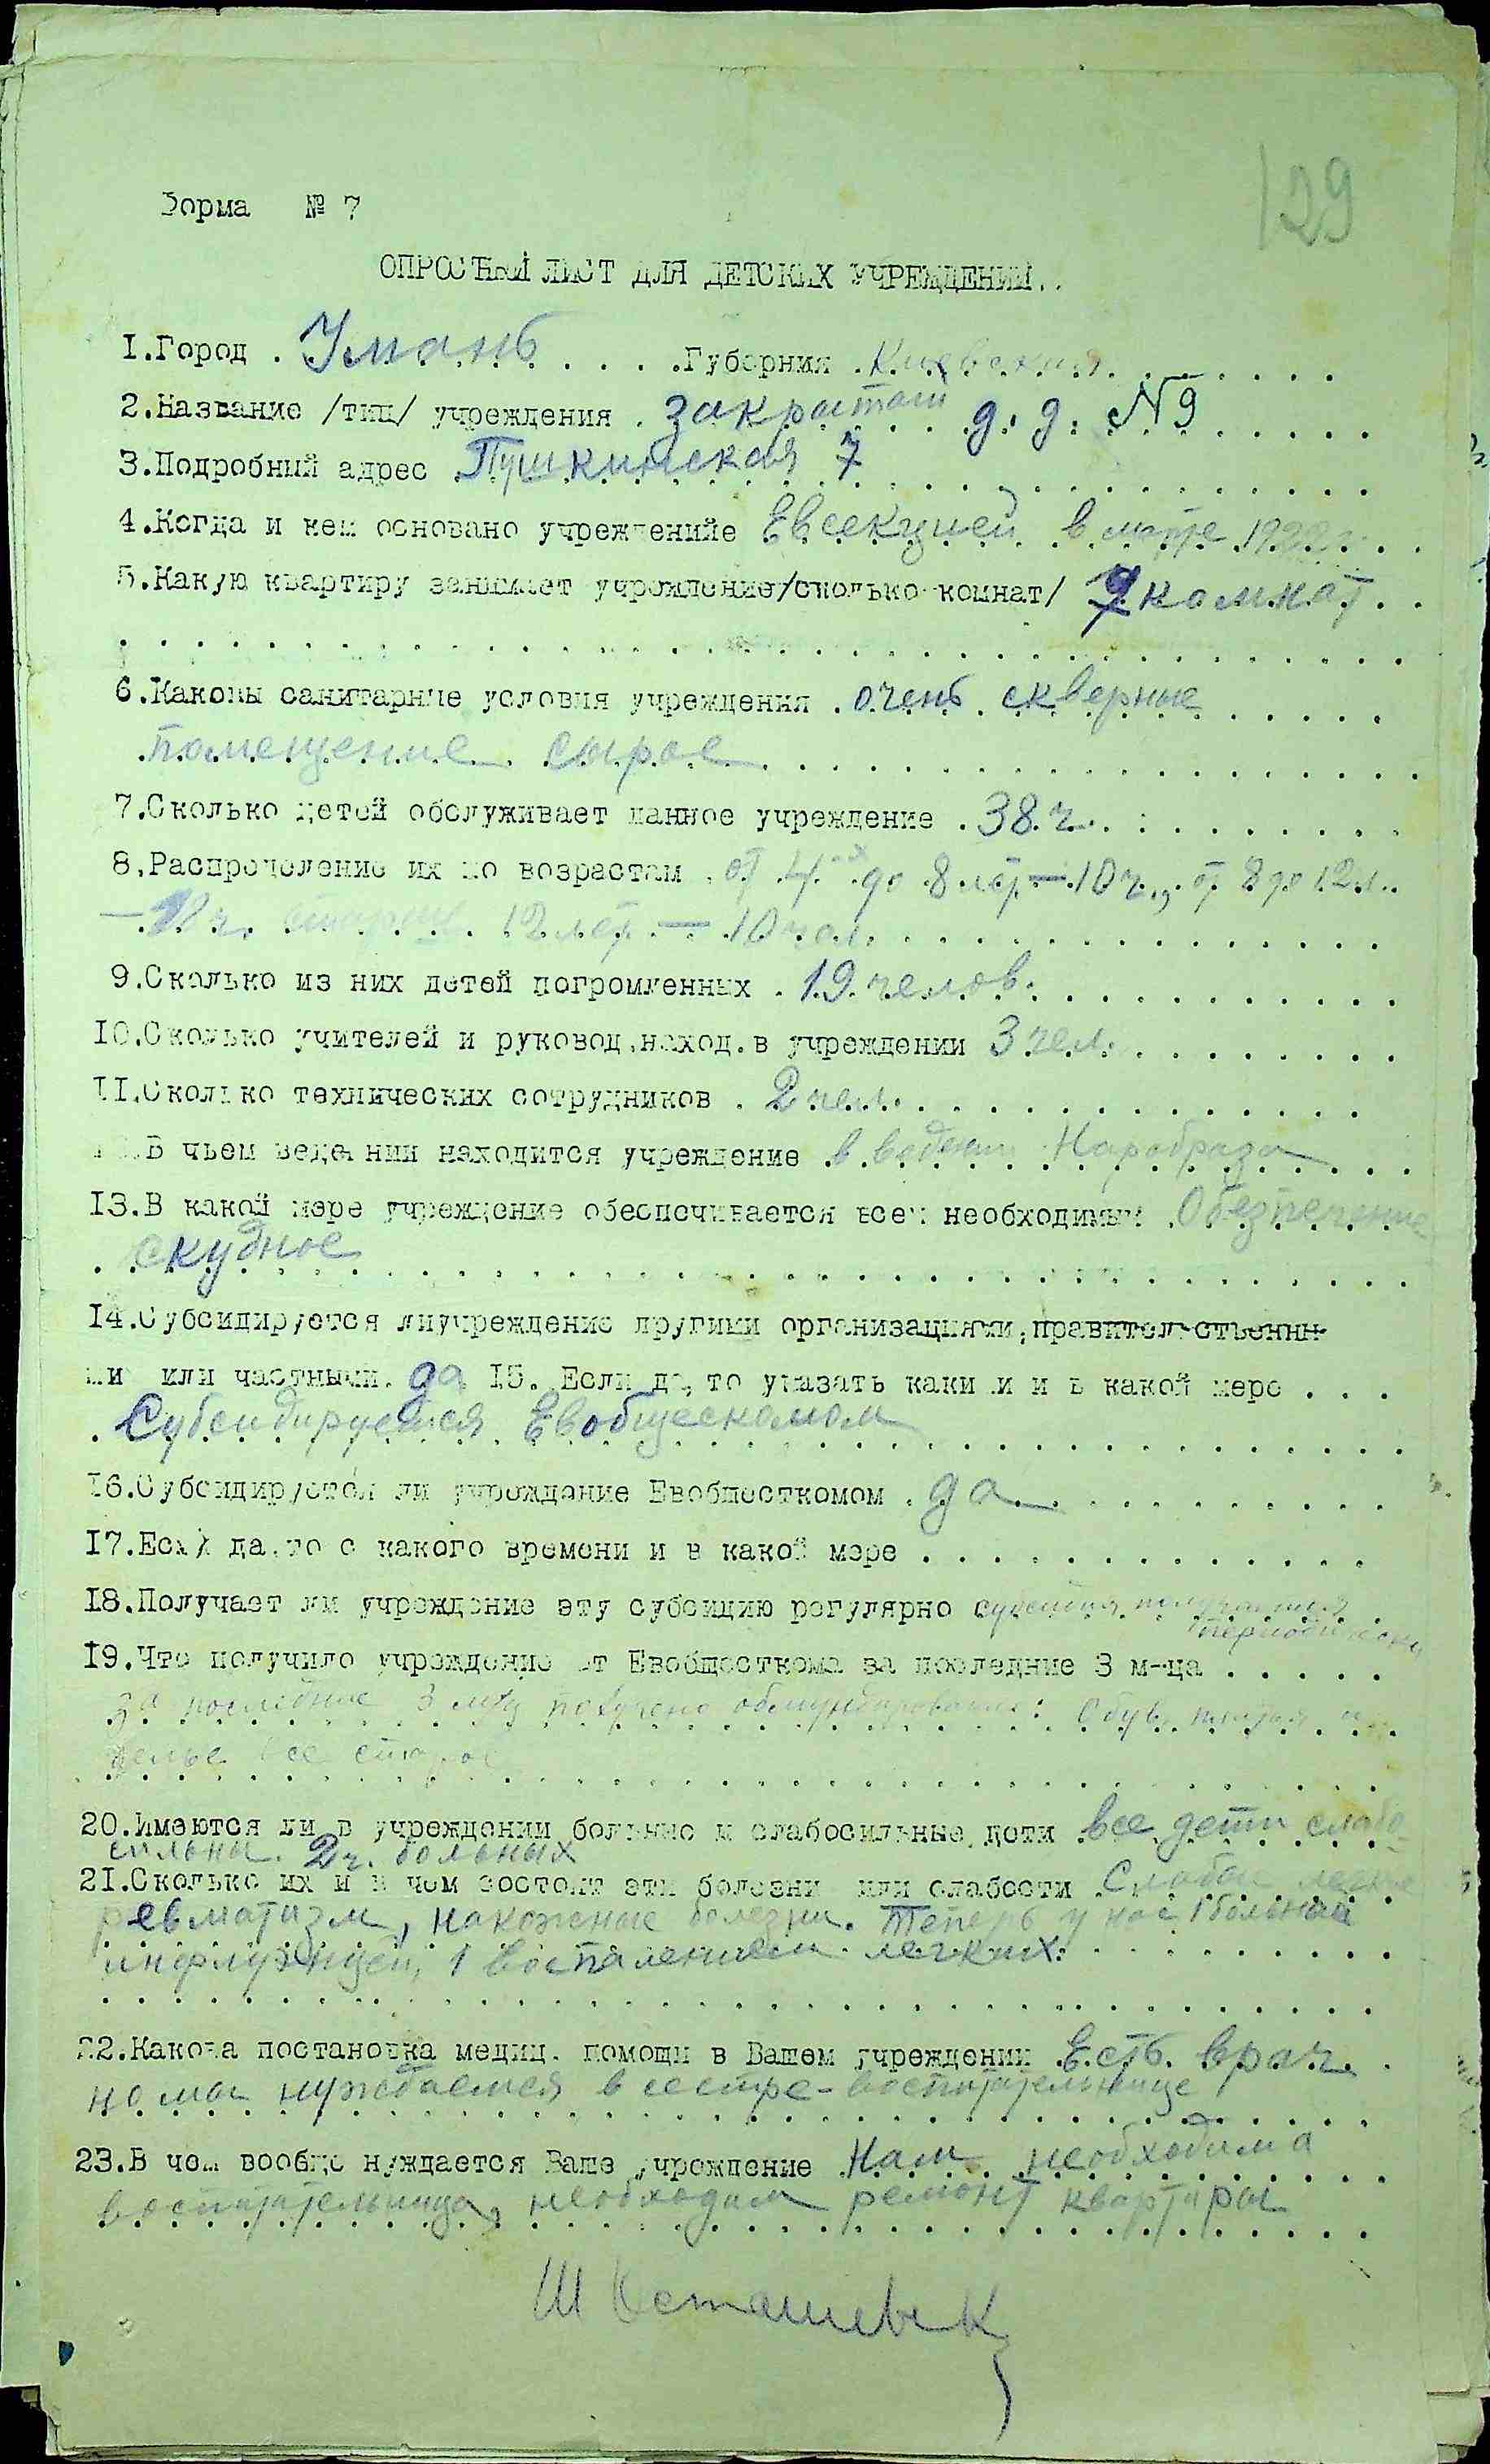 129
Форма № 7
ОПРОСНЫЙ ЛИСТ ДЛЯ ДЕТСКИХ УЧРЕЖДЕНИЙ..
1.Город . Умань . . . .Губерния . Киевская . . . . . .
2.Название /тип/ учреждения . закрытый д. д. №9 . . . .
3.Подробный адрес Пушкинская 7 . . . . . . . . .
4.Когда и кем основано учреждениие Евсекцией в марте 1922 г. . .
5.Какую квартиру занимает учреждение/сколько комнат/ 9 комнат . .
6.Каковы санитарные условия учреждения . очень скверные
помещение сырое
7.Сколько детей обслуживает данное учреждение . 38 ч.
8.Распределение их по возрастам . от 4-х до 8 лет — 10 ч., от 8 до 12 л.
— ч. старше 12 лет — 10 чел.
9.Сколько из них детей погромленных . 19 челов.
10.Сколько учителей и руковод.наход.в учреждении 3 чел.
11.Сколько технических сотрудников . 2 чел.
В чьем ведении находится учреждение в ведении Наробраза
13.В какой мере учреждение обеспечивается всем необходимым Обезпечение
скудное
14.Субсидируется лиучреждение другими организациями, правительственны-
ми или частными. да 15. Если да, то указать какими и в какой мере . . .
Субсидируется Евобщескомом
16.Субсидируется ли учреждение Евобщесткомом . да
17.Если да,то с какого времени и в какой мере . . . . . .
18.Получает ли учреждение эту субсидию регулярно субсидия получается
периодически
19.Что получило учреждение от Евобщесткома за последние 3 м-ца . . . . .
за последние 3 м-ца получено обмундирование: обувь, платья и
белье все старое
20.Имеются ли в учреждении больные и слабосильные дети все дети слабо-
сильны. 2 ч. больных
21.Сколько их и в чем состоят эти болезни или слабости Слабые легкие
ревматизм, накожные болезни. Теперь у нас 1 больной
инфлуэнцей, 1 воспалением легких.
22.Какова постановка медиц. помощи в Вашем учреждении Есть врач
но мы нуждаемся в сестре-воспитательнице
23.В чем вообще нуждается Ваше учреждение Нам необходима
воспитательница, необходим ремонт квартиры